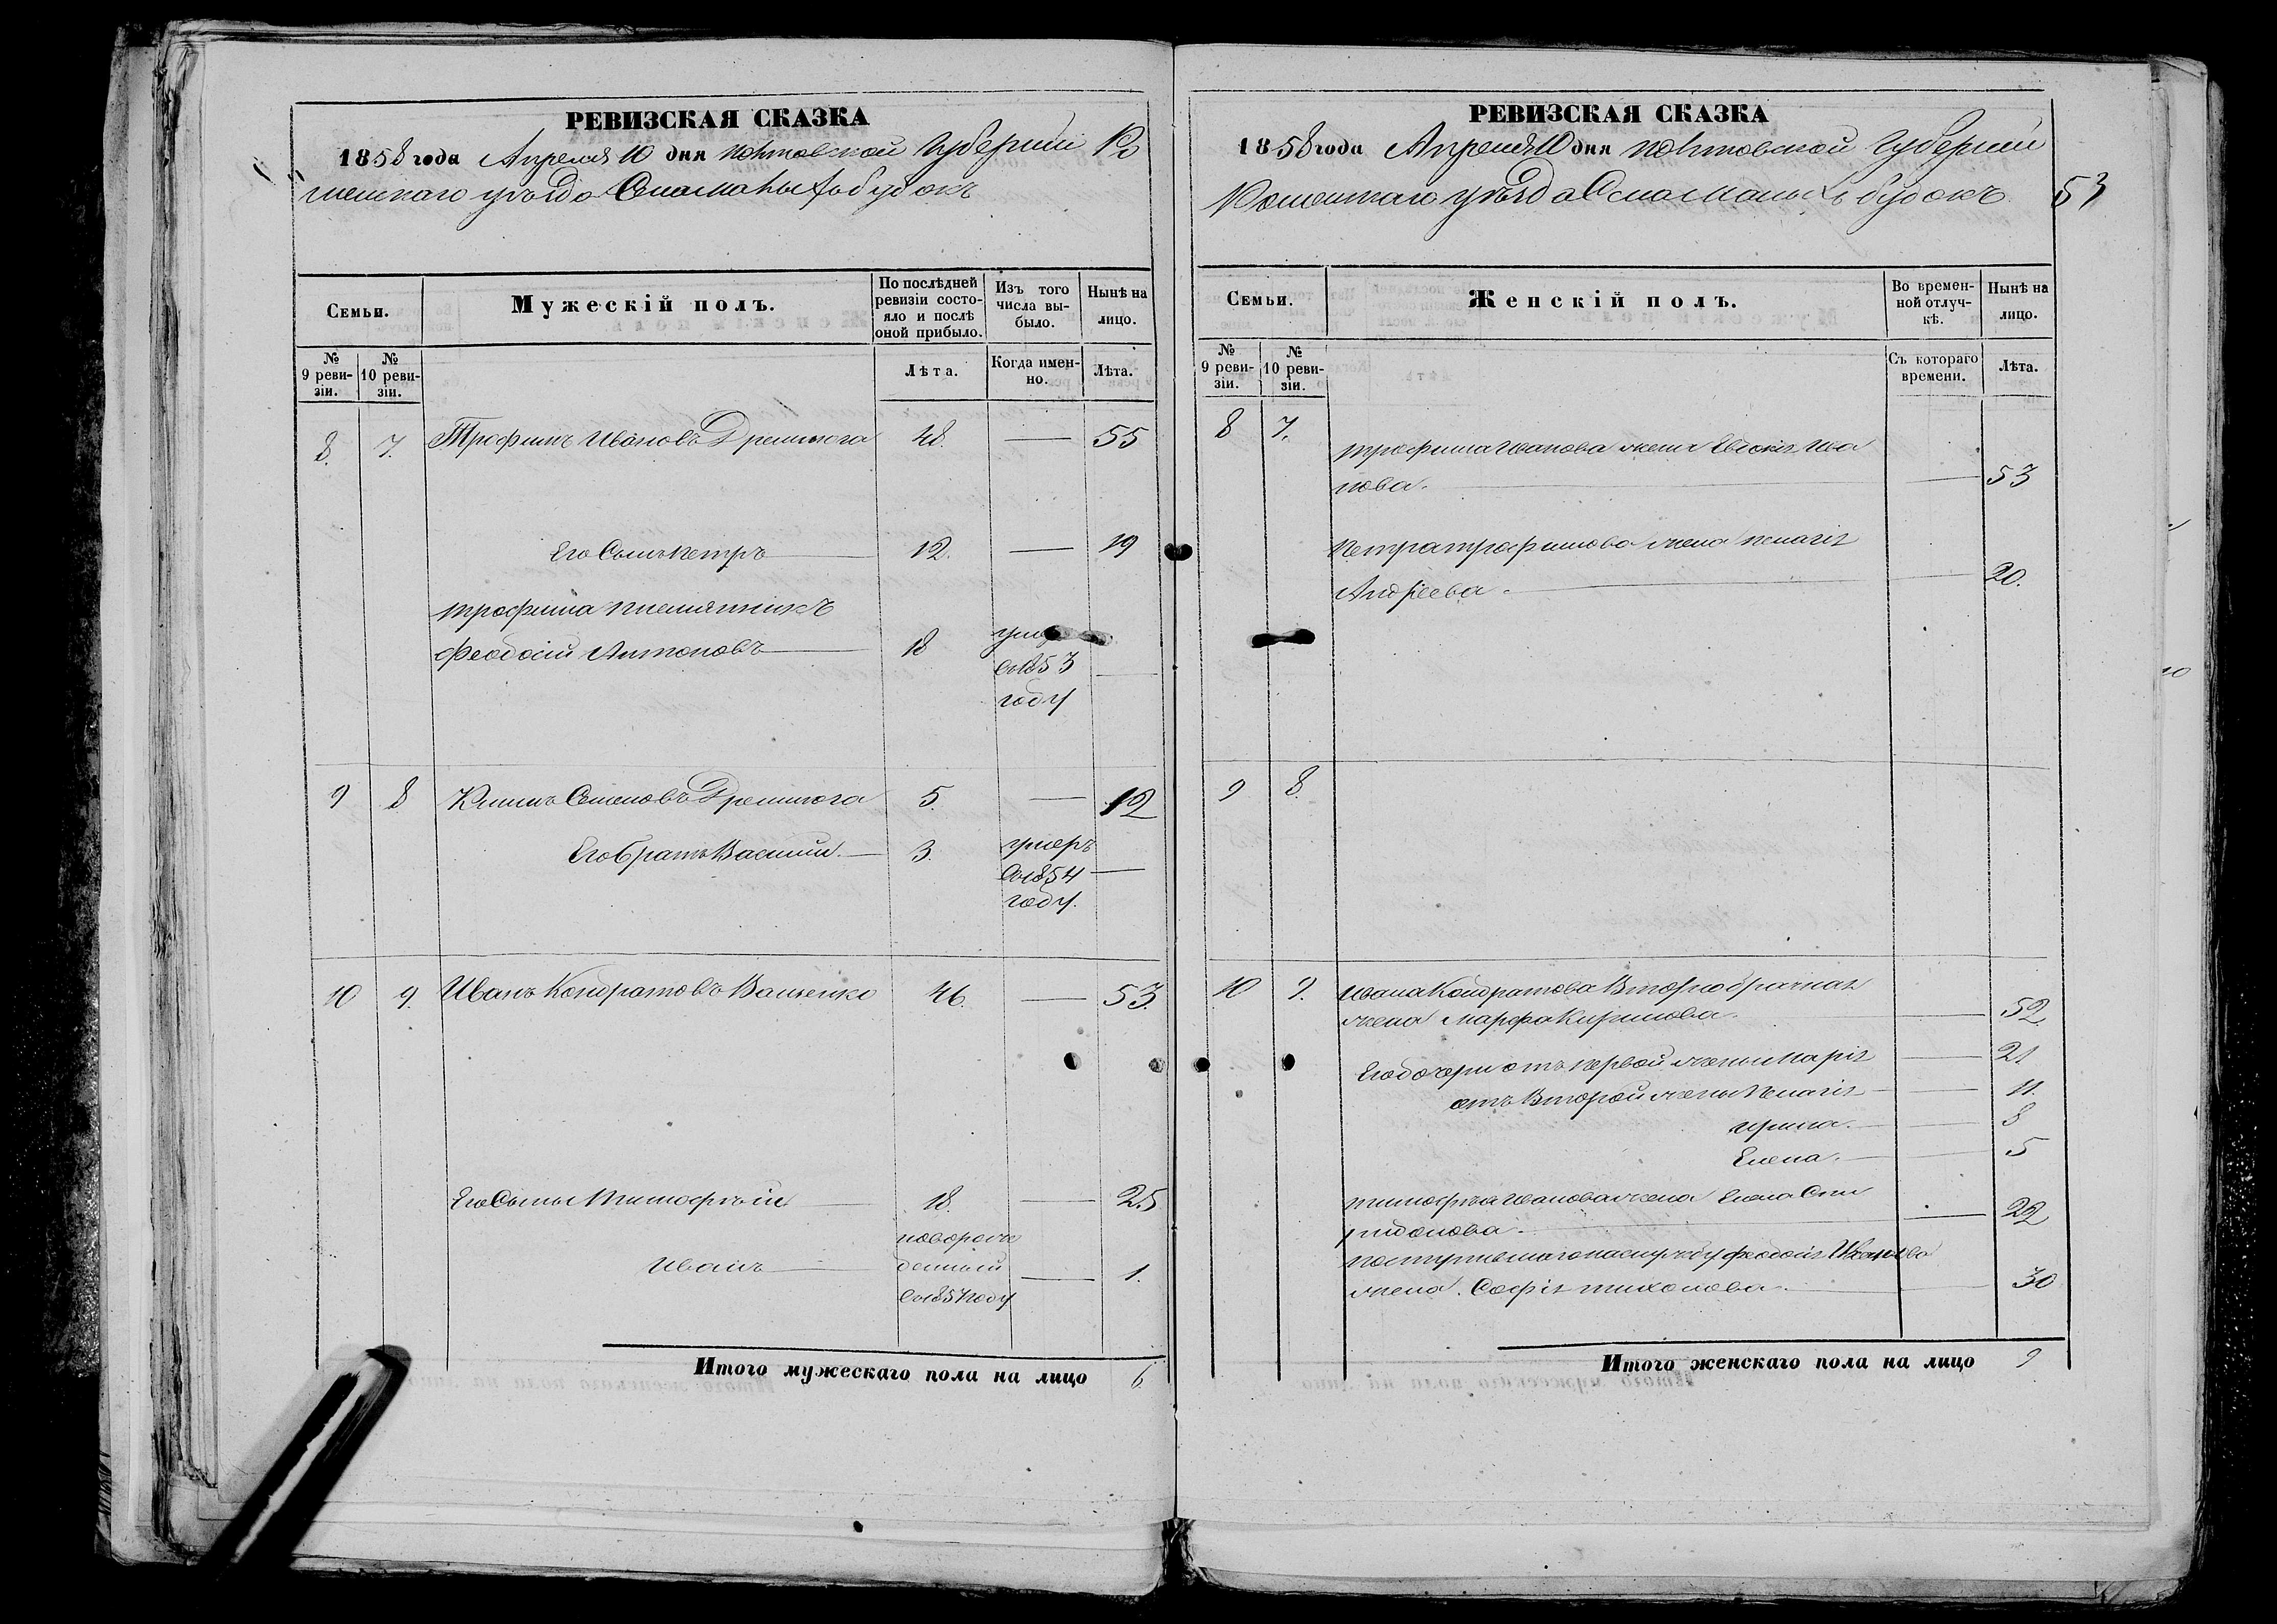 РЕВИЗСКАЯ СКАЗКА
1858 года Апреля 10 дня Полтавской Губерніи Ро
менскаго уѣзда
Семьи.
Мужескій полъ.
По послѣдней ревизіи состояло и послѣ оной прибыло.
Изъ того числа выбыло.
Нынѣ на лицо.
№ 9 ревизіи.
№ 10 ревизіи.
Лѣта.
Когда именно.
Лѣта.
8. 7. Трофимъ Ивановъ Дремлюга 48. — 55
Его Сынъ Петръ 12. — 19
Трофима племянникъ
Феодосій Антоновъ 18 умеръ
въ 1853 —
году
9 8 Климъ Семеновъ Дремлюга 5. — 12
Его братъ Василий. 3. умеръ
въ 1854 —
году.
10 9. Иванъ Кондратовъ Ващенко 46. — 53.
Его Сыны Тимофѣй 18. — 25
новорож
Иванъ денный — 1.
въ 1857 году
Итого мужескаго пола на лицо 6.
РЕВИЗСКАЯ СКАЗКА
1858 года Апреля 10 дня Полтавской Губерніи
Роменскаго уѣзда
53
Семьи.
Женскій полъ.
Во временной отлучкѣ.
Нынѣ на лицо.
№ 9 ревизіи.
№ 10 ревизіи.
Съ котораго времени.
Лѣта.
8 7. Трофима Иванова жена Евдокія Ива
нова. — 53
Петра Трофимова жена Пелагія
Андреева. — 20.
9 8.
10 9. Ивана Кондратова Второбрачная
жена Марфа Кирилова. — 52
Его дочери отъ первой жены Марія — 21
отъ Второй жены Пелагія — 11.
Ирина. — 8
Елена. — 5
Тимофѣя Иванова жена Елена Спи
ридонова. — 22
поступившаго на службу Феодосія Иванова
жена. Софія Тихонова. — 30
Итого женскаго пола на лицо 9